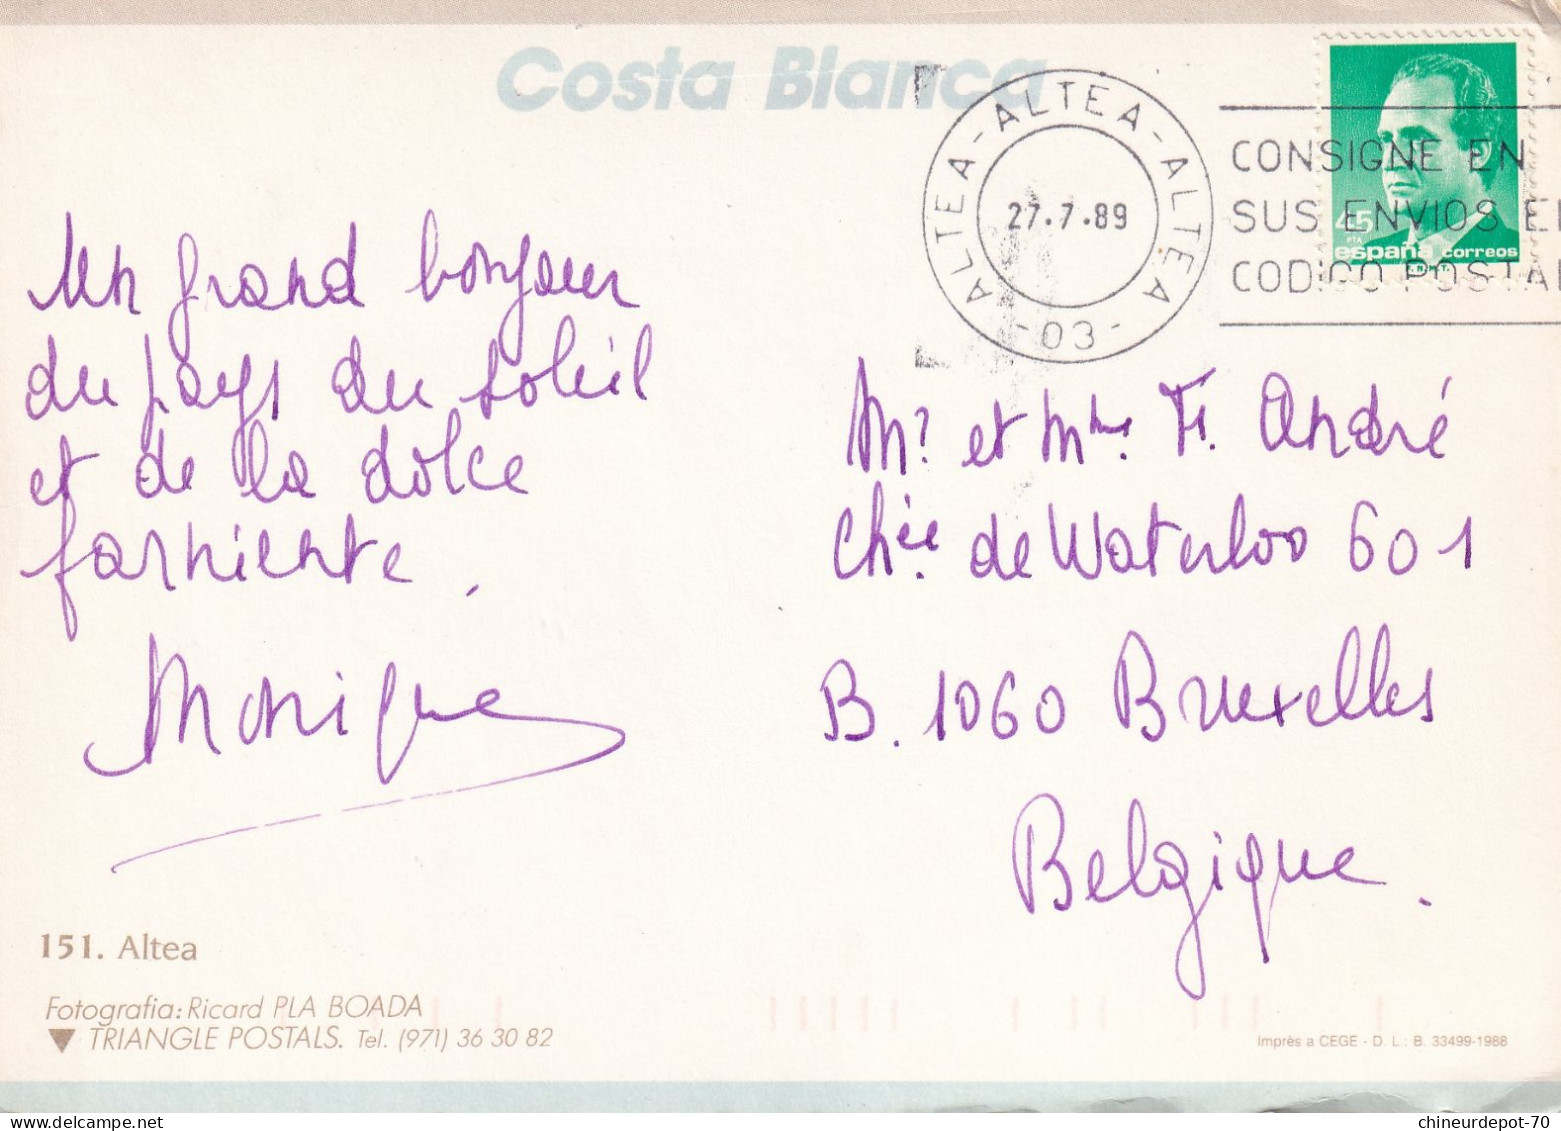 Costa Blanca
ALTEA - ALTEA - ALTEA
27.7.89
- 03 -
CONSIGNE EN
SUS ENVIOS EL
CODIGO POSTAL
45
PTA
españa correos
F.N.M.T.
Un grand bonjour
du pays du soleil
et de la dolce
farniente.
Monique
Mr. et Mme. F. André
Chée. de Waterloo 601
B. 1060 Bruxelles
Belgique.
151. Altea
Fotografia: Ricard PLA BOADA
TRIANGLE POSTALS. Tel. (971) 36 30 82
Imprès a CEGE - D. L.: B. 33499-1988
chineurdepot-70